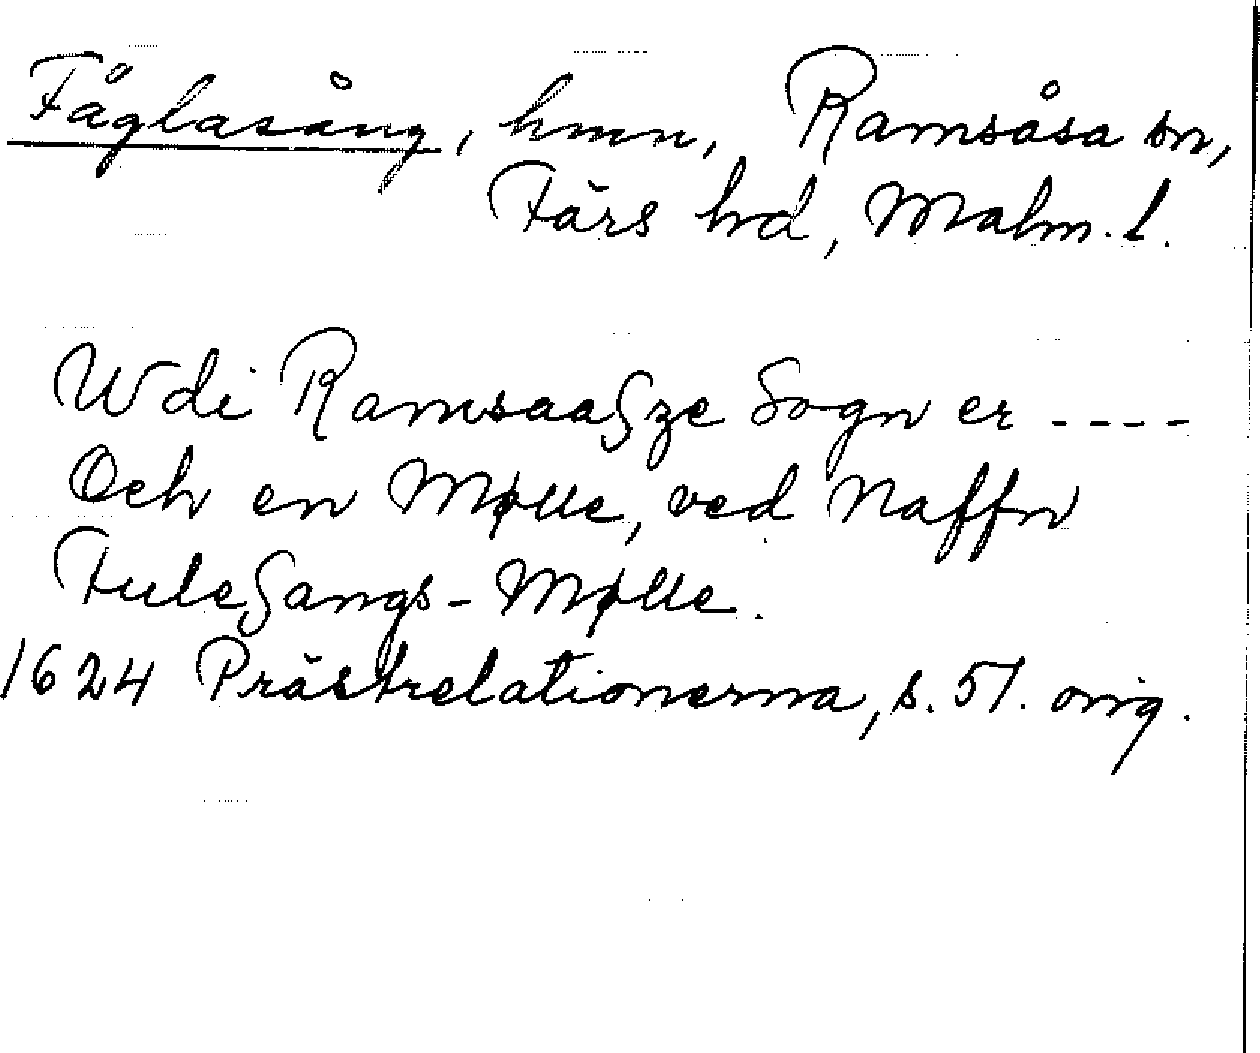 Fåglasång, hmn, Ramsåsa sn,
Färs hd, Malm. l.
Wdi Ramsaaſze Sogn er ----
Och en Mølle, ved Naffn
Fuleſangs-Mølle.
1624 Prästrelationerna, s. 51. orig.